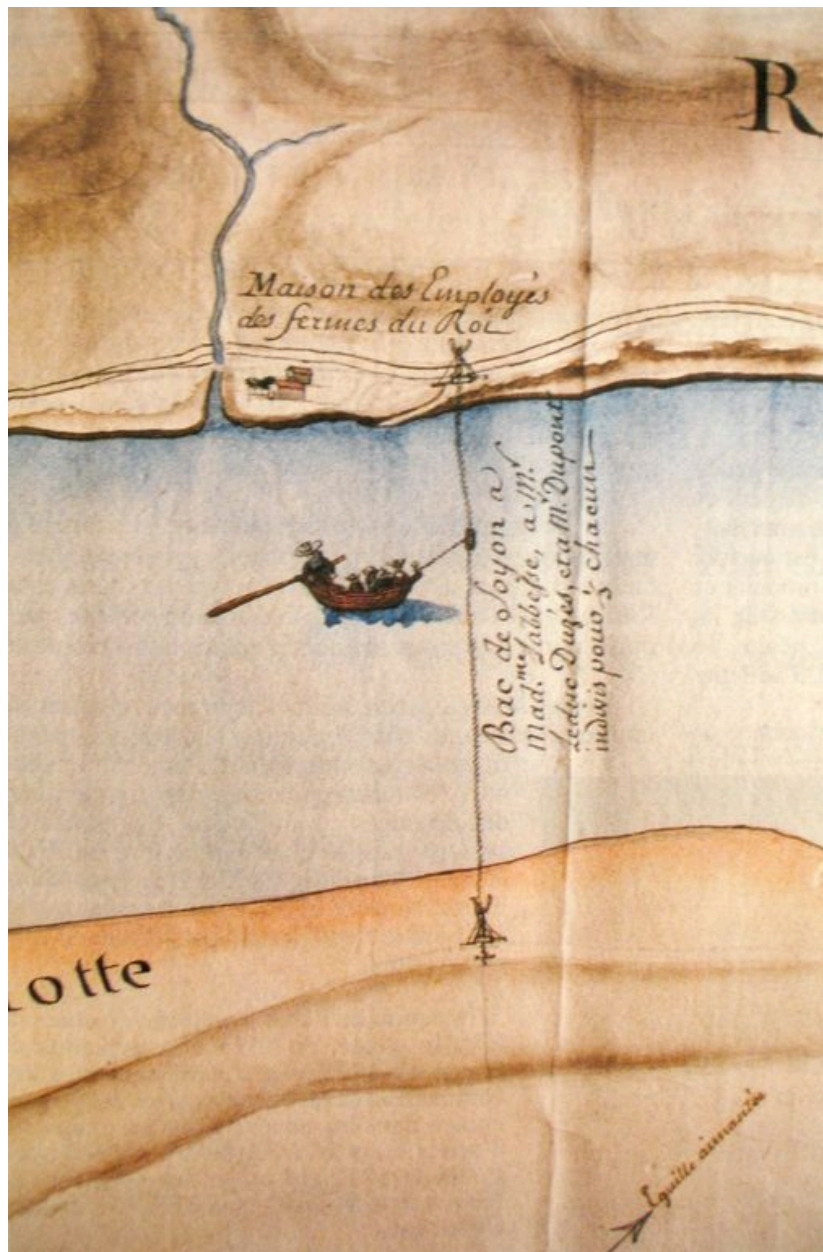 R
Maison des Employés
des fermes du Roi
Bac de Soyon a
Mad.me Labbesse, a M.r
Leduc Duzés, et a M.r Dupont
indivis pour ⅓ chacun
otte
Eguille aimantée